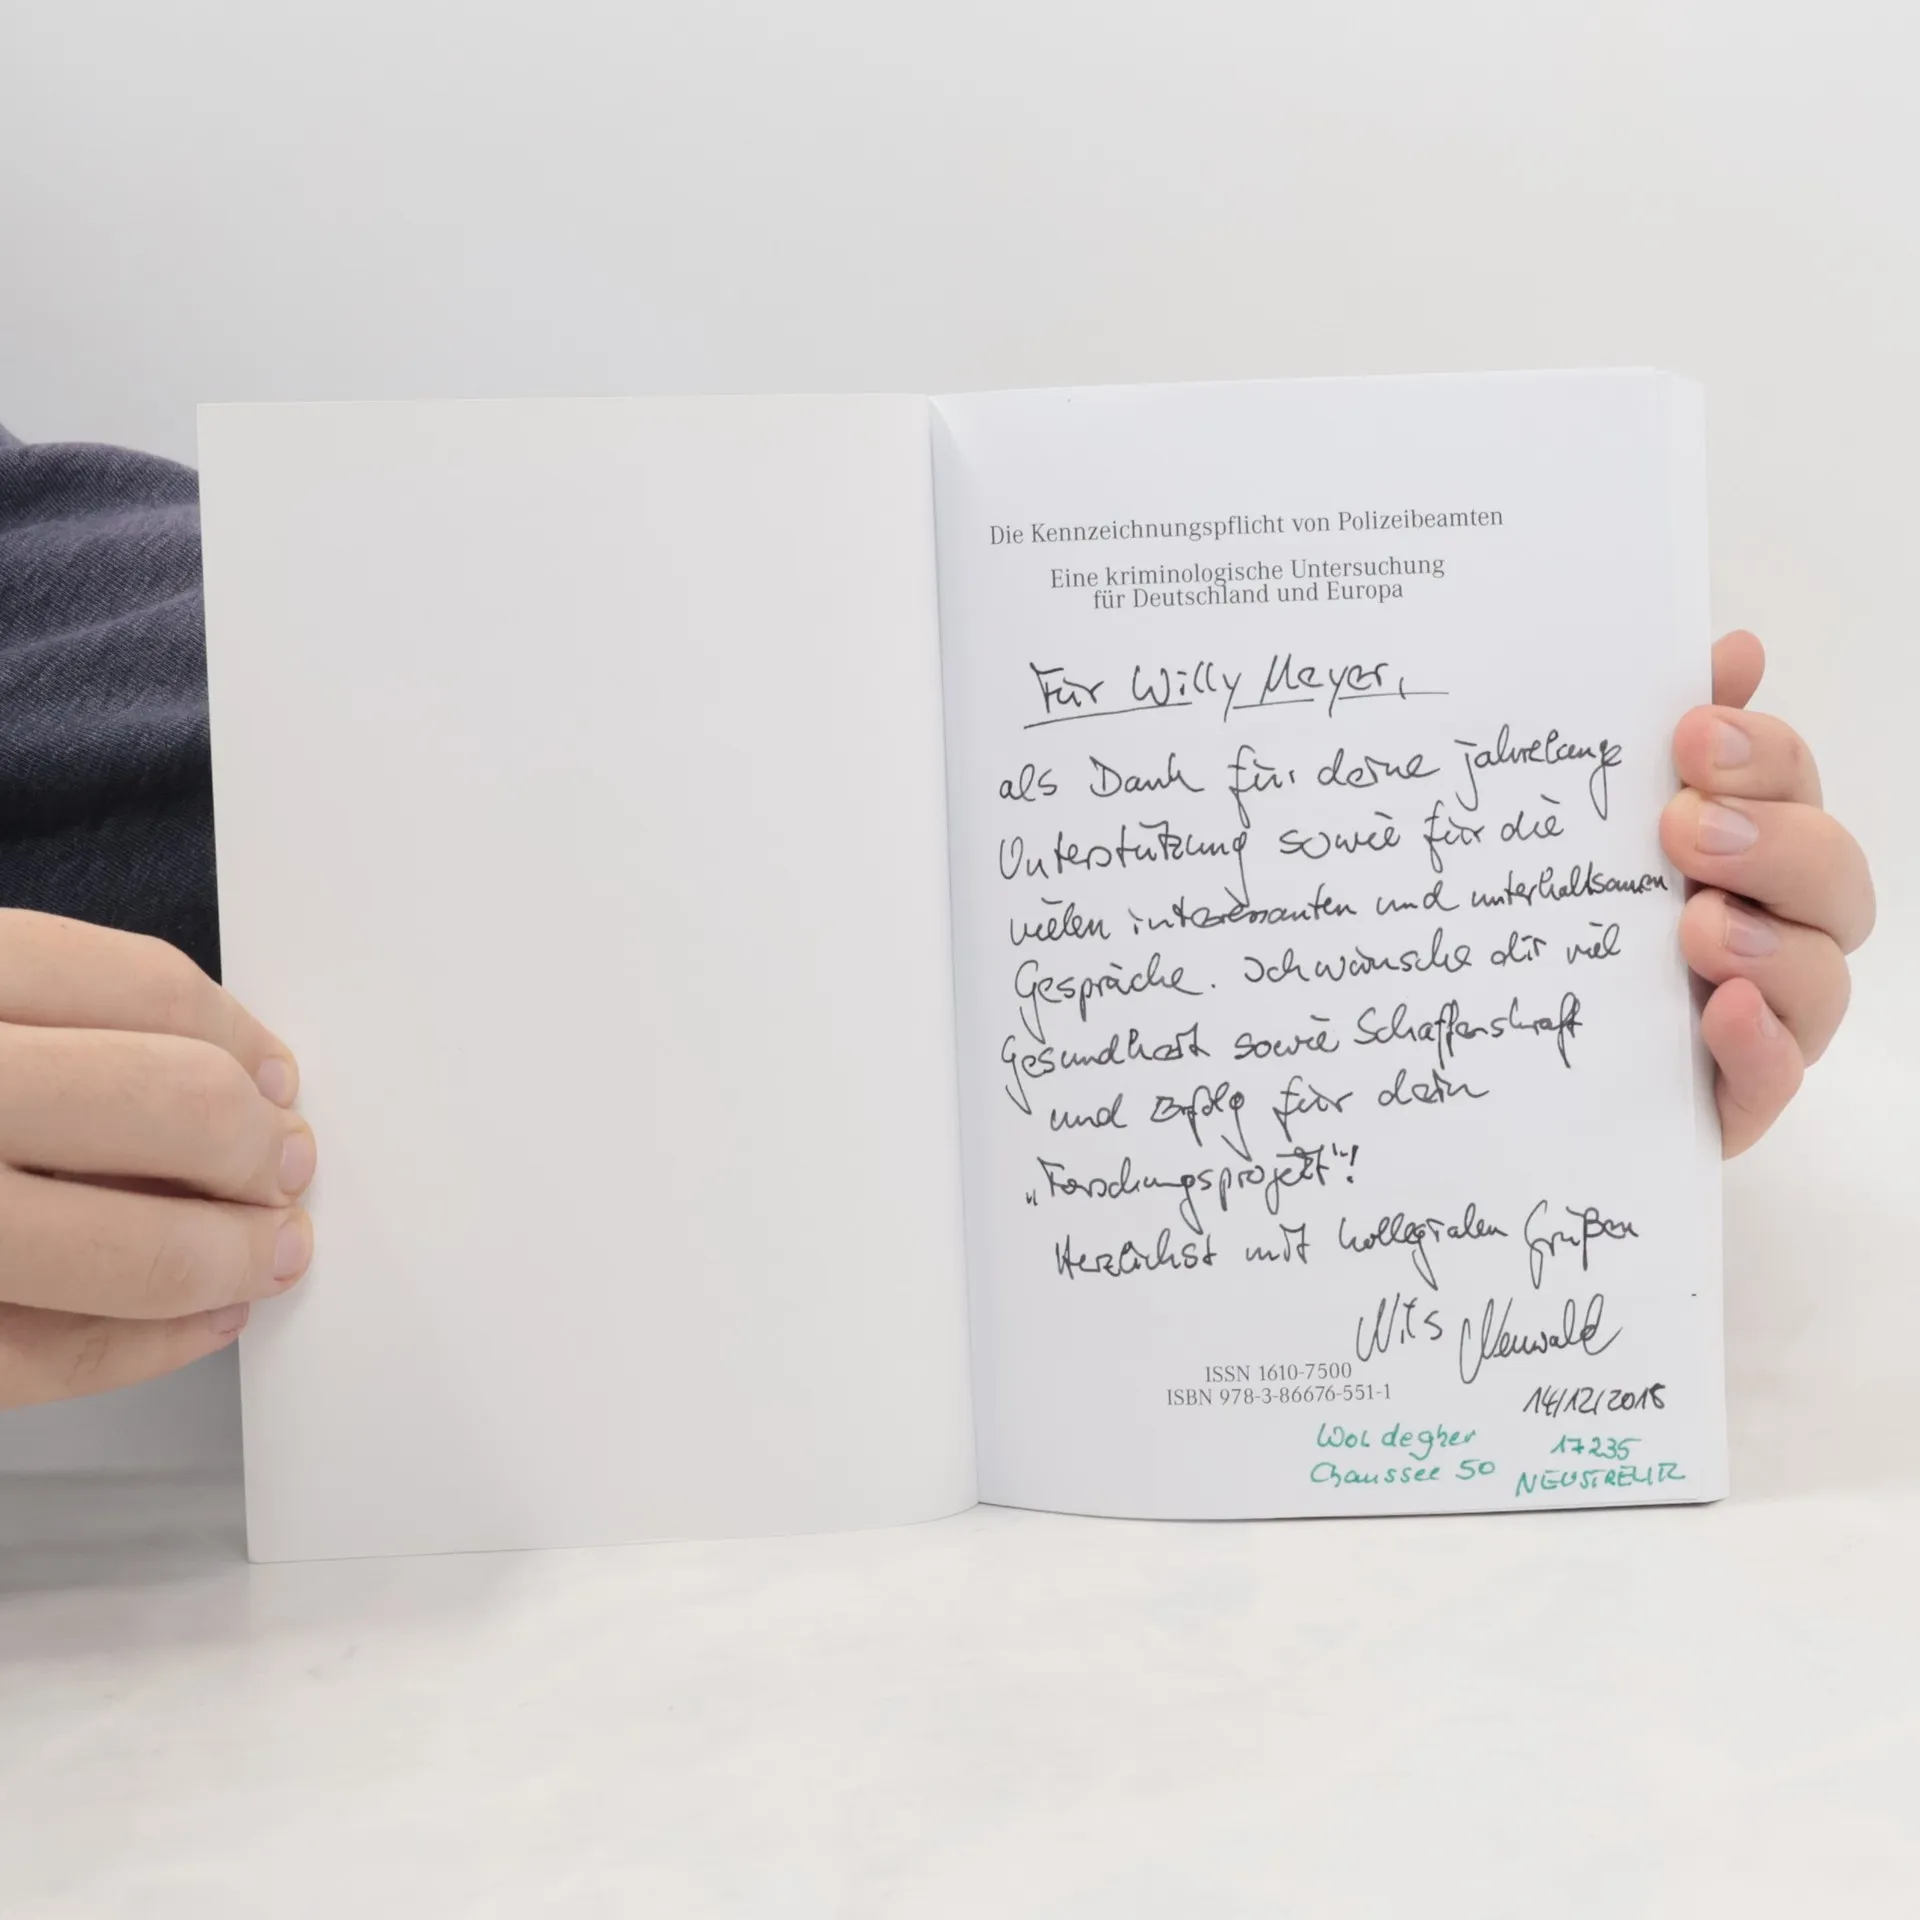 Die Kennzeichnungspflicht von Polizeibeamten
Eine kriminologische Untersuchung
für Deutschland und Europa
Für Willy Meyer,
als Dank für deine jahrelange
Unterstützung sowie für die
vielen interessanten und unterhaltsamen
Gespräche. Ich wünsche dir viel
Gesundheit sowie Schaffenskraft
und Erfolg für dein
„Forschungsprojekt"!
Herzlichst mit kollegialen Grüßen
Nils Neuwald
ISSN 1610-7500
ISBN 978-3-86676-551-1
14/12/2018
Woldegker
Chaussee 50
17235
NEUSTRELITZ